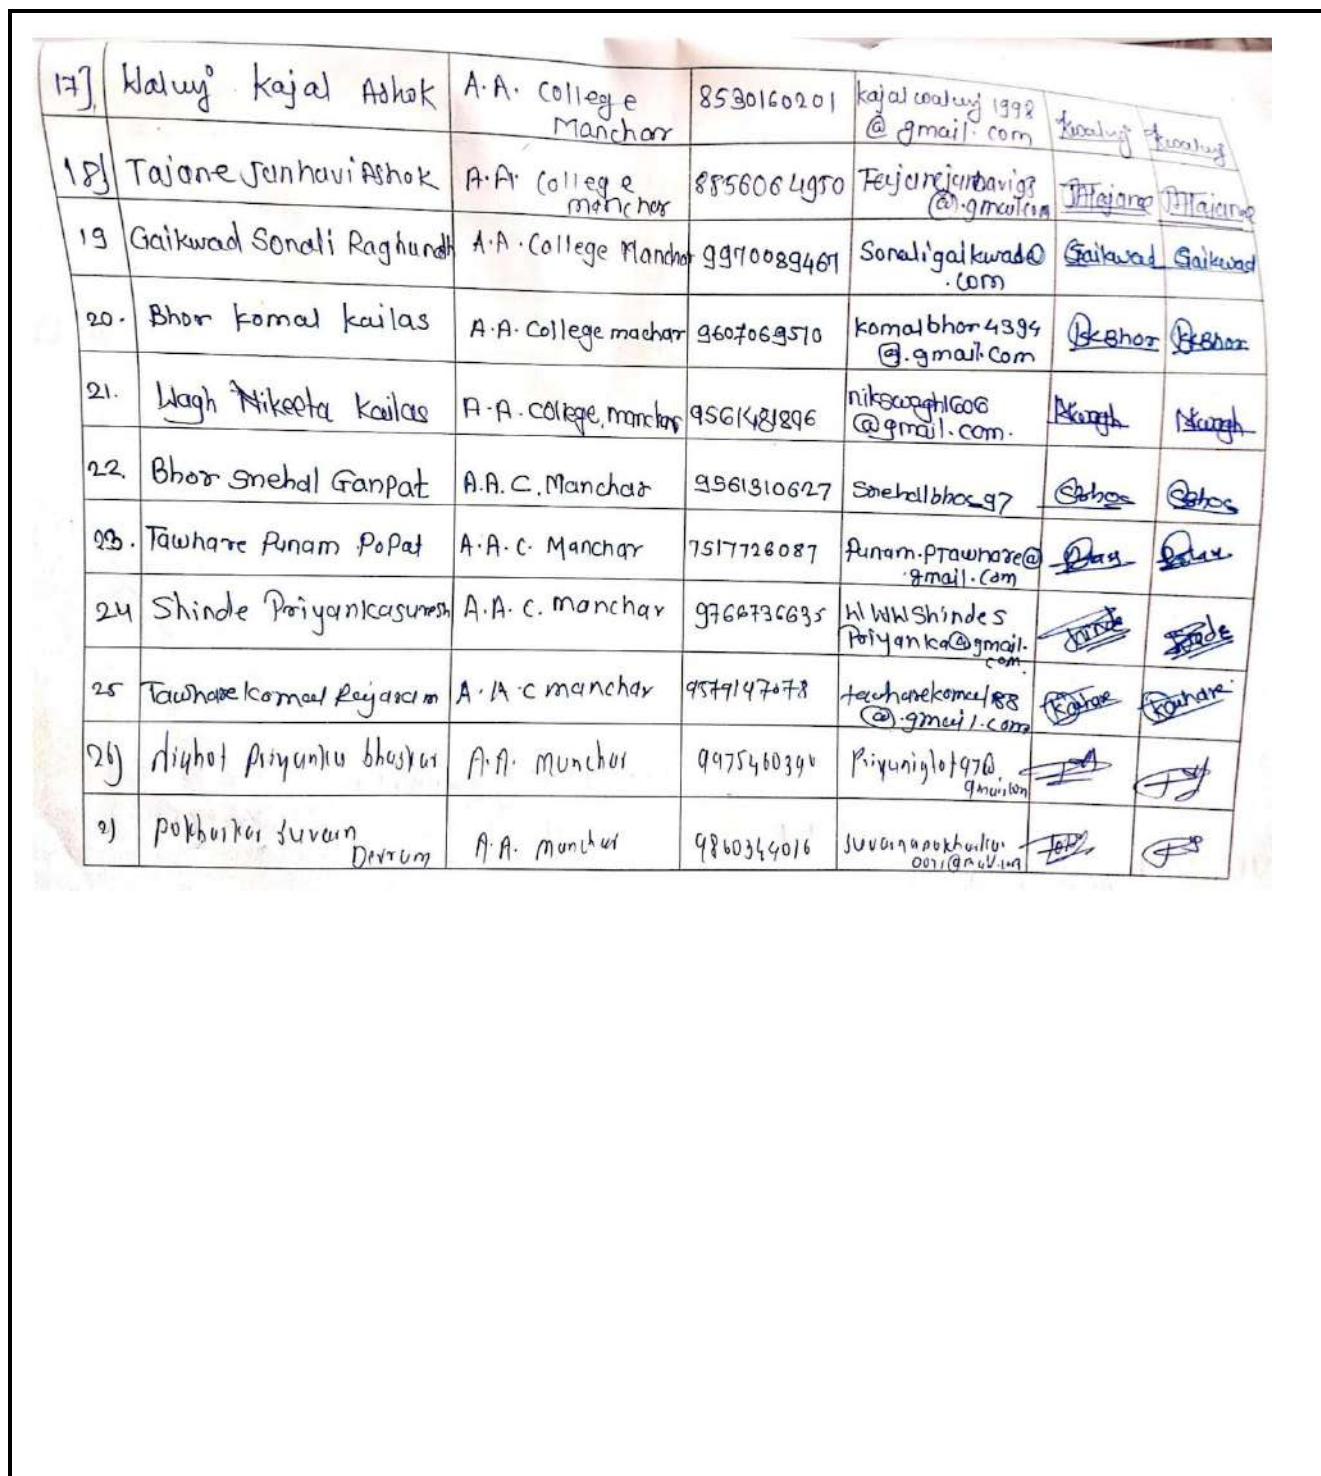 17] Waluj Kajal Ashok A.A. College Manchar 8530160201 kajalwaluj1998 @gmail.com Kwaluj Kwaluj
18] Tajane Janhavi Ashok A.A. College manchar 8856064950 @.gmail.com JATajane JATajane
19 Gaikwad Sonali Raghunath A.A. College Manchar 9970089467 Sonaligaikwad@ .com Gaikwad Gaikwad
20. Bhor Komal kailas A.A. College machar 9607069510 komalbhor4394 @.gmail.com KKBhor KKBhor
21. Wagh Nikeeta Kailas A.A. College, manchar 9561481896 nikswagh1606 @gmail.com. NKwagh NKwagh
22. Bhor Snehal Ganpat A.A.C. Manchar 9561310627 Snehalbhor97 SBhor SBhor
23. Tawhare Punam PoPat A.A.C. Manchar 7517726087 Punam.PTawhare@ gmail.com
24 Shinde Priyankasuresh A.A.C. manchar 9766736635 WWWShindeS Priyanka@gmail. com. Shinde
25 Tawhare Komal Rajaram A.A.C manchar 9579147078 tawharekomal188 @.gmail.com
26) Nighot Priyanka bhaskar A.A. Manchar
2) Pokharkar Suvarn Devram A.A. Manchar 9860344016